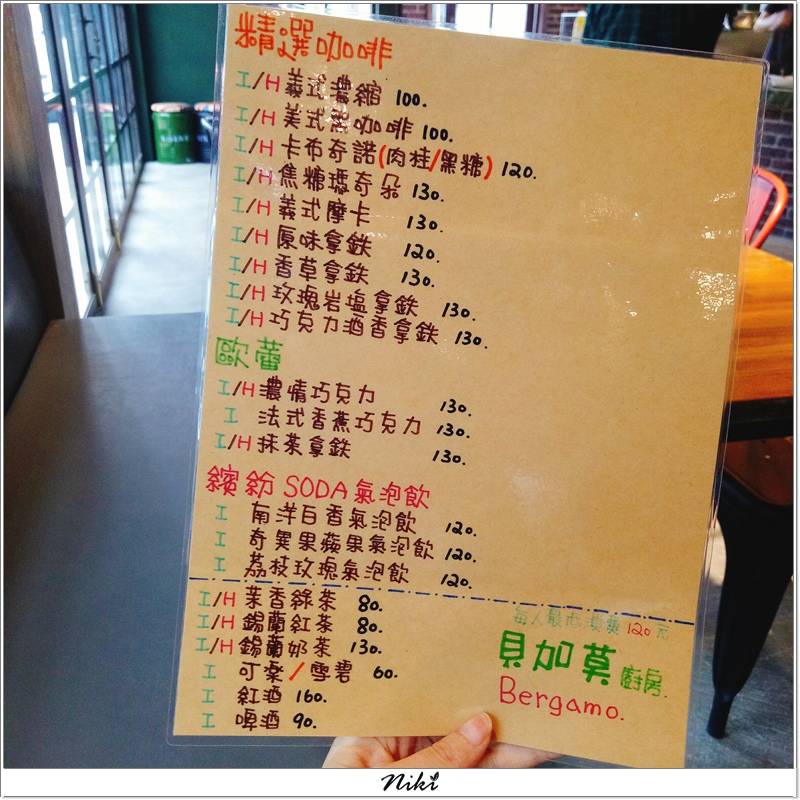 精選咖啡
I/H 義式濃縮 100.
I/H 美式黑咖啡 100.
I/H 卡布奇諾(肉桂/黑糖) 120.
I/H 焦糖瑪奇朵 130.
I/H 義式摩卡 130.
I/H 原味拿鉄 120.
I/H 香草拿鉄 130.
I/H 玫瑰岩塩拿鉄 130.
I/H 巧克力酒香拿鉄 130.
歐蕾
I/H 濃情巧克力 130.
I 法式香蕉巧克力 130.
I/H 抹茶拿鉄 130.
繽紛 SODA 氣泡飲
I 南洋百香氣泡飲 120.
I 奇異果蘋果氣泡飲 120.
I 荔枝玫瑰氣泡飲 120.
I/H 茉香綠茶 80.
I/H 錫蘭紅茶 80.
I/H 錫蘭奶茶 130.
I 可樂/雪碧 60.
I 紅酒 160.
I 啤酒 90.
每人最低消費 120 元
貝加莫 廚房.
Bergamo.
Niki